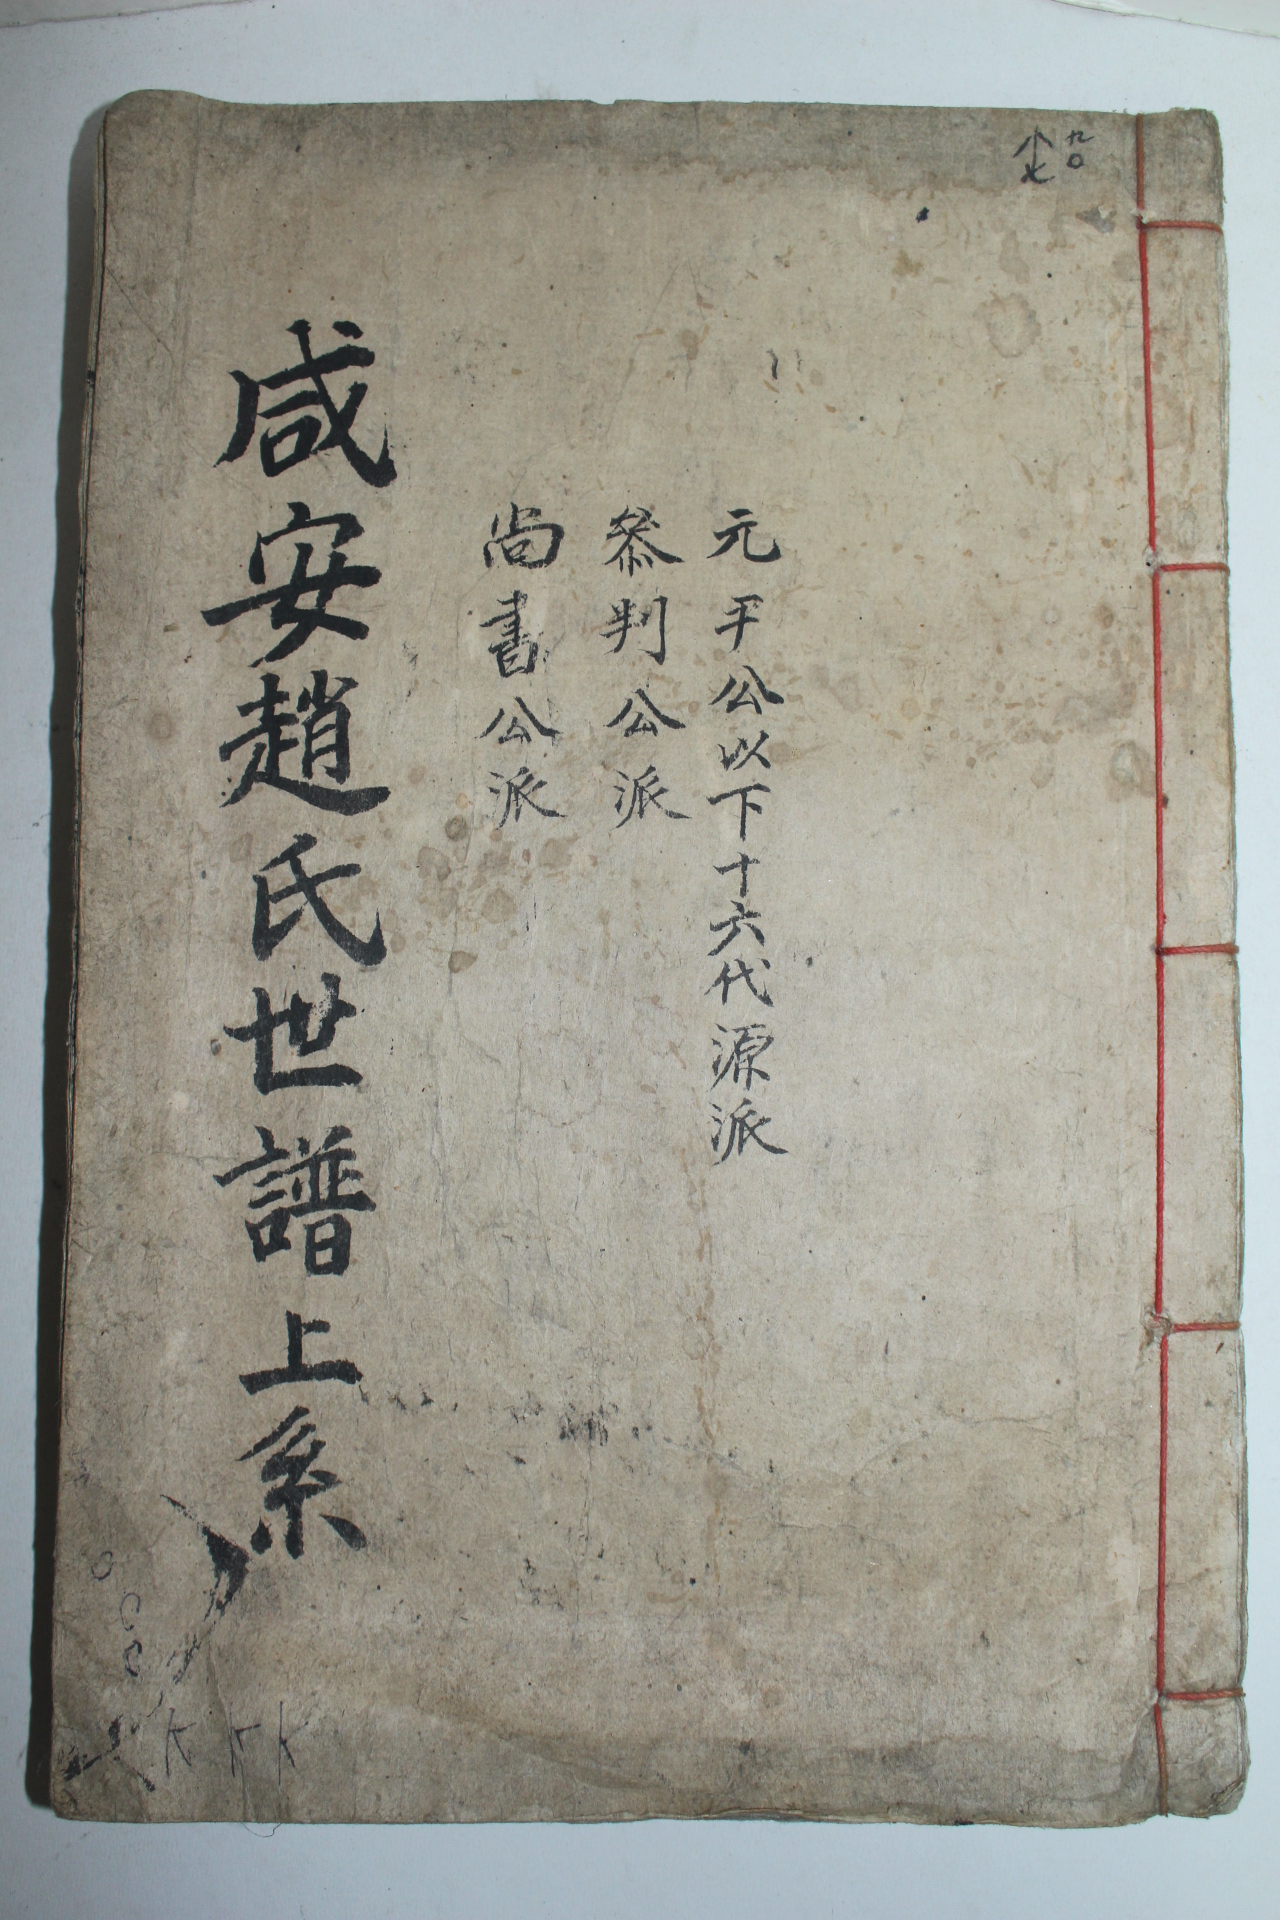 九〇
元平公以下十六代源派
叅判公派
尙書公派
咸安趙氏世譜上系
K K K